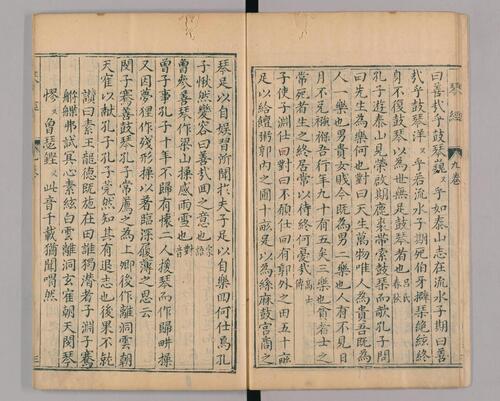 琴經 九卷
曰善哉乎鼓琴巍〻乎如泰山志在流水子期曰善
哉乎鼓琴洋〻乎若流水子期死伯牙擗琴絶絃終
身不復鼓琴以為世無足鼓琴者也 呂氏春秋
孔子遊泰山見榮啟期鹿裘帶索鼓琴而歌孔子問
曰先生為樂何也對曰天生萬物唯人為貴吾既為
人一樂也男貴女賤今既為男二樂也人有不見日
月不免襁褓吾行年九十有五矣三樂也貧者士之
常死者生之終居常以待終何憂哉 高士傳
子使子淵仕回對曰不願仕回有郭外之田五十畝
足以給饘粥郭內之圃十畝足以為絲麻鼓宮商之
琴足以自娛習所聞於夫子足以自樂回何仕焉孔
子愀然變容曰善哉回之意也
曾參善琴作梁山操感雨雪也
曾子事孔子十年不歸有懷二人援琴而作歸畊操
又因夢狸作殘形操以著臨深履薄之思云
閔子騫善鼓琴孔子常薦之為上卿後作離洞雲朝
天寉以獻孔子孔子喟然知其有退志也後果不就
讚曰素王龍德既施在田誰獨潛者子淵子騫
弗試寘心素絃白雲離洞玄寉朝天閔琴
憀〻曾瑟鏗〻此音千載猶聞喟然
三